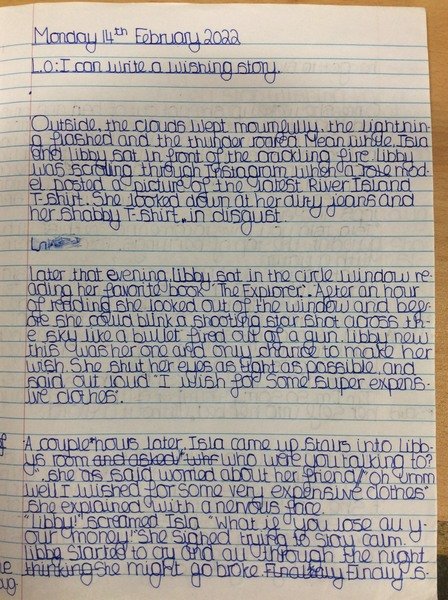 Monday 14th February 2022
L.O: I can write a wishing story.
Outside, the clouds wept mournfully, the lightnin-
g flashed and the thunder roared. Mean while, Isla
and libby sat in front of the crackling fire. libby
was scrolling through Instagram when a mod-
el posted a picture of the latest River Island
T-shirt. She looked down at her dirty jeans and
her shabby T-shirt, in disgust.
Later that evening, libby sat in the circle window re-
ading her favorite book "The Explorer". After an hour
of reading she looked out of the window and bef-
ore she could blink a shooting star shot across th-
e sky like a bullet fired out of a gun. libby new
this was her one and only chance to make her
wish. She shut her eyes as tight as possible, and
said out loud "I wish for some super expens-
ive clothes".
A couple hours later, Isla came up stairs into Libb-
ys room and asked "who were you talking to?
", she as said worried about her friend "oh umm
well I wished for some very expensive clothes"
she explained with a nervous face.
"Libby!" screamed Isla "What if you lose all y-
our money!" She sighed trying to stay calm.
libby started to cry and all through the night
thinking she might go broke. Finally s-